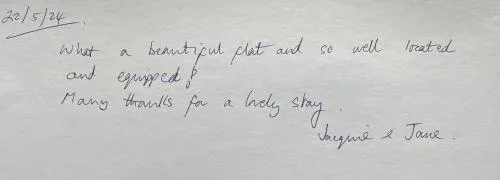 22/5/24.
What a beautiful flat and so well located
and equipped!
Many thanks for a lovely stay.
Jacquie & Jane.